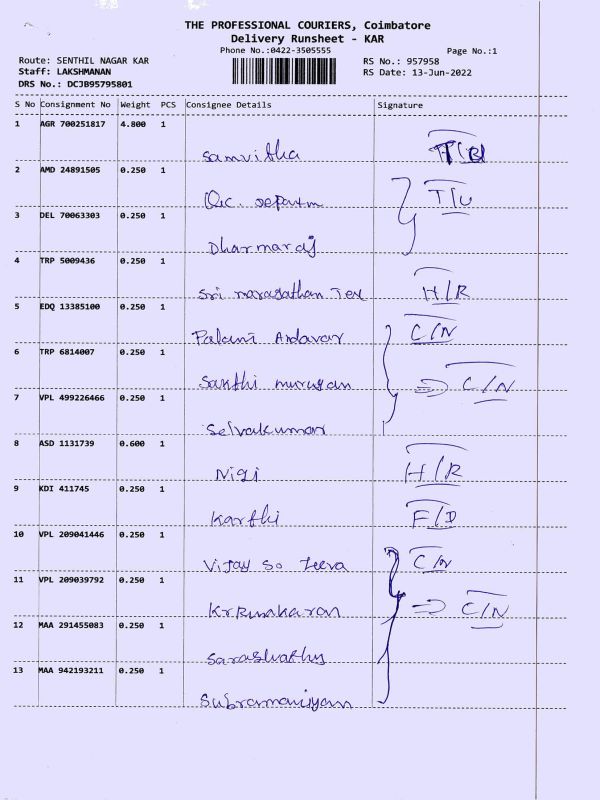 THE PROFESSIONAL COURIERS, Coimbatore
Delivery Runsheet - KAR
Phone No.:0422-3505555
Page No.:1
Route: SENTHIL NAGAR KAR
RS No.: 957958
Staff: LAKSHMANAN
RS Date: 13-Jun-2022
DRS No.: DCJB95795801
S No Consignment No Weight PCS Consignee Details Signature
1 AGR 700251817 4.800 1
Samvitha
2 AMD 24891505 0.250 1
T/U
3 DEL 70063303 0.250 1
Dharmaraj
4 TRP 5009436 0.250 1
Sri Tex H/R
5 EDQ 13385100 0.250 1
Palani Andavar C/N
6 TRP 6814007 0.250 1
Sakthi murugan => C/N
7 VPL 499226466 0.250 1
Selvakumar
8 ASD 1131739 0.600 1
Nigi H/R
9 KDI 411745 0.250 1
Karthi F/D
10 VPL 209041446 0.250 1
Vijay So Jeeva C/N
11 VPL 209039792 0.250 1
=> C/N
12 MAA 291455083 0.250 1
13 MAA 942193211 0.250 1
Subramaniyam